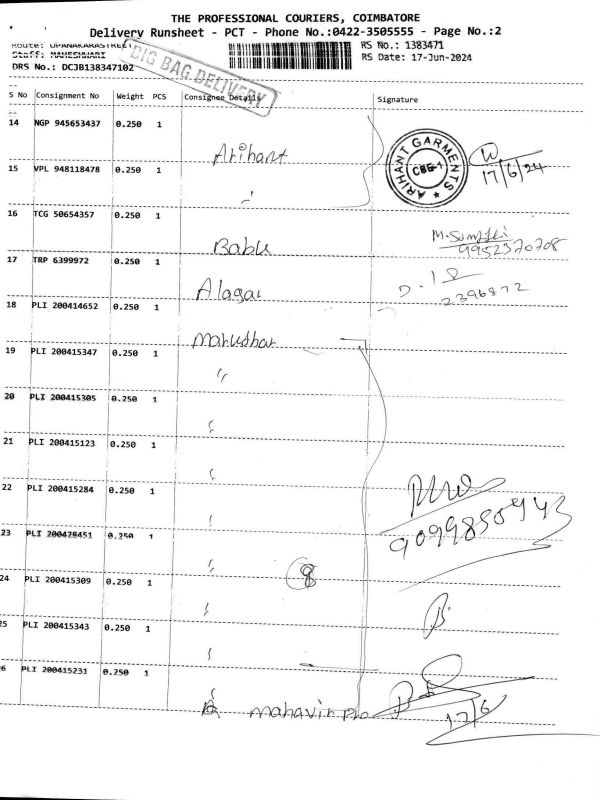 THE PROFESSIONAL COURIERS, COIMBATORE
Delivery Runsheet - PCT - Phone No.:0422-3505555 - Page No.:2
Route: UPANAKARASTREET RS No.: 1383471
Staff: MAHESHWARI RS Date: 17-Jun-2024
DRS No.: DCJB138347102
BIG BAG DELIVERY
S No Consignment No Weight PCS Consignee Details Signature
14 NGP 945653437 0.250 1 Arihant
ARIHANT GARMENTS CBE-1 ★
17/6/24
15 VPL 948118478 0.250 1 〃
16 TCG 50654357 0.250 1 Babu
9952370708
17 TRP 6399972 0.250 1 Alagar
2396872
18 PLI 200414652 0.250 1 Marudhar
19 PLI 200415347 0.250 1 〃
20 PLI 200415305 0.250 1 〃
21 PLI 200415123 0.250 1 〃
22 PLI 200415284 0.250 1 〃
9099850943
23 PLI 200428451 0.250 1 〃
8
24 PLI 200415309 0.250 1 〃
25 PLI 200415343 0.250 1 〃
26 PLI 200415231 0.250 1 〃
mahavir
17/6